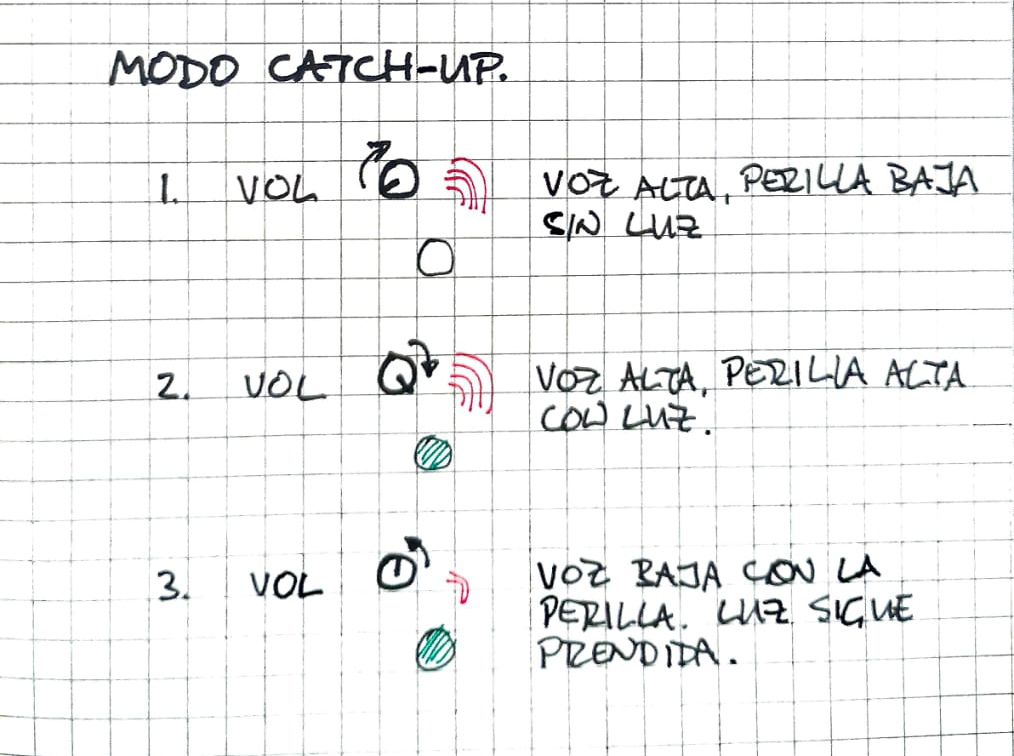 MODO CATCH-UP.
1. VOL VOZ ALTA, PERILLA BAJA
SIN LUZ
2. VOL VOZ ALTA, PERILLA ALTA
CON LUZ.
3. VOL VOZ BAJA CON LA
PERILLA. LUZ SIGUE
PRENDIDA.